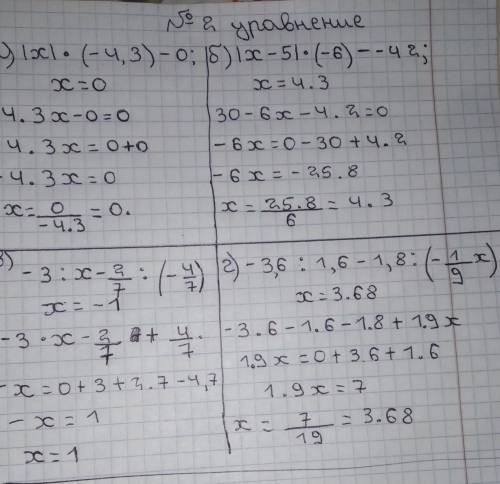 № 2 уравнение
) |x| · (-4,3) - 0;
x = 0
4.3x - 0 = 0
4.3x = 0+0
- 4.3x = 0
x = 0/-4.3 = 0.
б) |x - 5| · (-6) - - 42;
x = 4.3
30 - 6x - 4.2 = 0
- 6x = 0 - 30 + 4.2
- 6x = - 25.8
x = 25.8/6 = 4.3
в)
- 3 : x - 2/7 : (- 4/7)
x = - 1
- 3 · x - 2/7 + 4/7.
- x = 0 + 3 + 2.7 - 4,7
- x = 1
x = 1
г) - 3,6 : 1,6 - 1,8 : (- 1/9 x)
x = 3.68
- 3.6 - 1.6 - 1.8 + 1.9x
1.9x = 0 + 3.6 + 1.6
1.9x = 7
x = 7/19 = 3.68